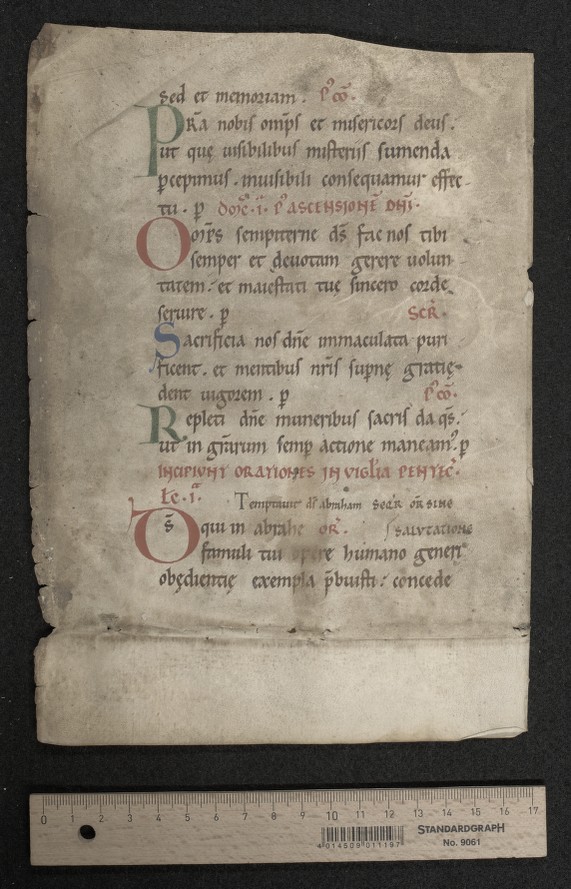 sed et memoriam. Pʳ cō.
Pr̄a nobis om̄ps et misericors deus.
ut quę uisibilibus misteriis sumenda
p̱cepimus. inuisibili consequamur effec-
tu. p̱ DOM̄C. I. Pʳ ASCENSIONĒ DN̄I.
Om̄ps sempiterne ds̄ fac nos tibi
semper et deuotam gerere uolun-
tatem. et maiestati tuę sincero corde
seruire. p̱ SECR̄.
Sacrificia nos dn̄e immaculata puri
ficent. et mentibus nr̄is supnę gratię
dent uigorem. p̱ Pʳ cō.
Repleti dn̄e muneribus sacris da qs̄.
ut in gr̄arum semp̱ actione maneam᷒. p̱
INCIPIUNT ORATIONES IN VIGILIA PENTEC̄.
Lec. I.ᵃ Temptauit ds̄ abraham seq̄r or̄ sine
Ds̄ qui in abrahę OR̄. SALUTATIONE
famuli tui opere humano generi
obędientię exempla p̄buisti. concede
0 1 2 3 4 5 6 7 8 9 10 11 12 13 14 15 16 17
4 014509 011197
STANDARDGRAPH
No. 9061